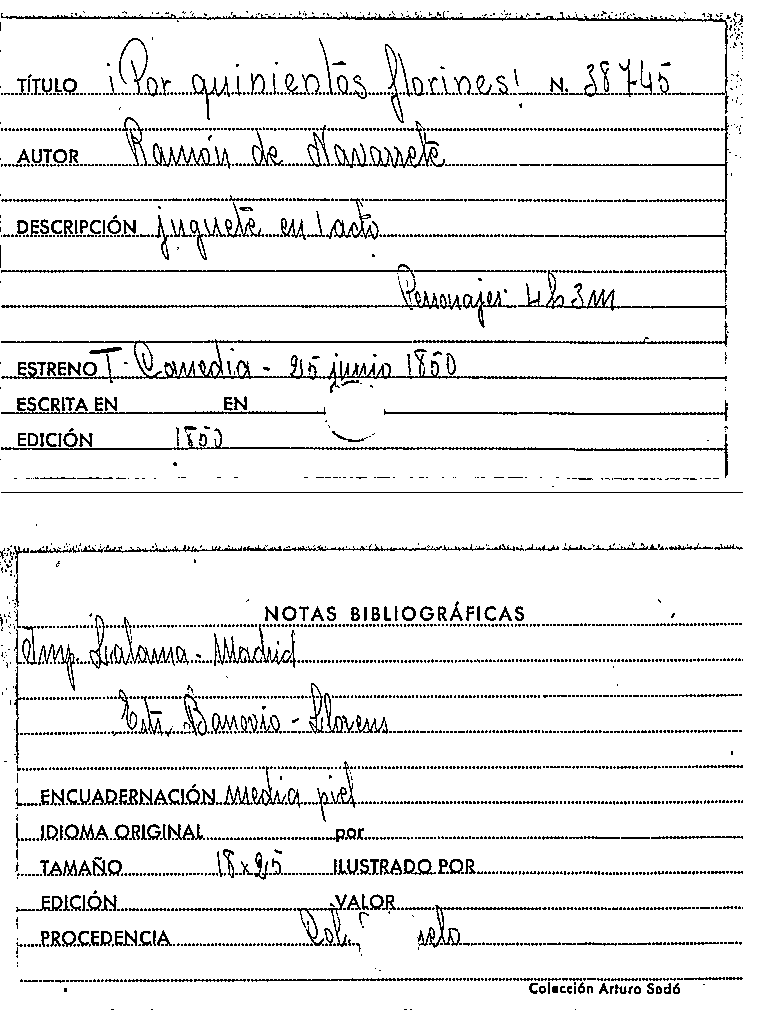 TÍTULO ¡Por quinientos florines! N. 38745
AUTOR Ramón de Navarrete
DESCRIPCIÓN juguete en 1 acto
Personajes 4h 3m
ESTRENO T. Comedia - 25 junio 1850
ESCRITA EN EN
EDICIÓN 1850
NOTAS BIBLIOGRÁFICAS
Imp. Lalama - Madrid
Estr. - Llorens
ENCUADERNACIÓN media piel
IDIOMA ORIGINAL por
TAMAÑO 18 x 25 ILUSTRADO POR
EDICIÓN VALOR
PROCEDENCIA
Colección Arturo Sedó